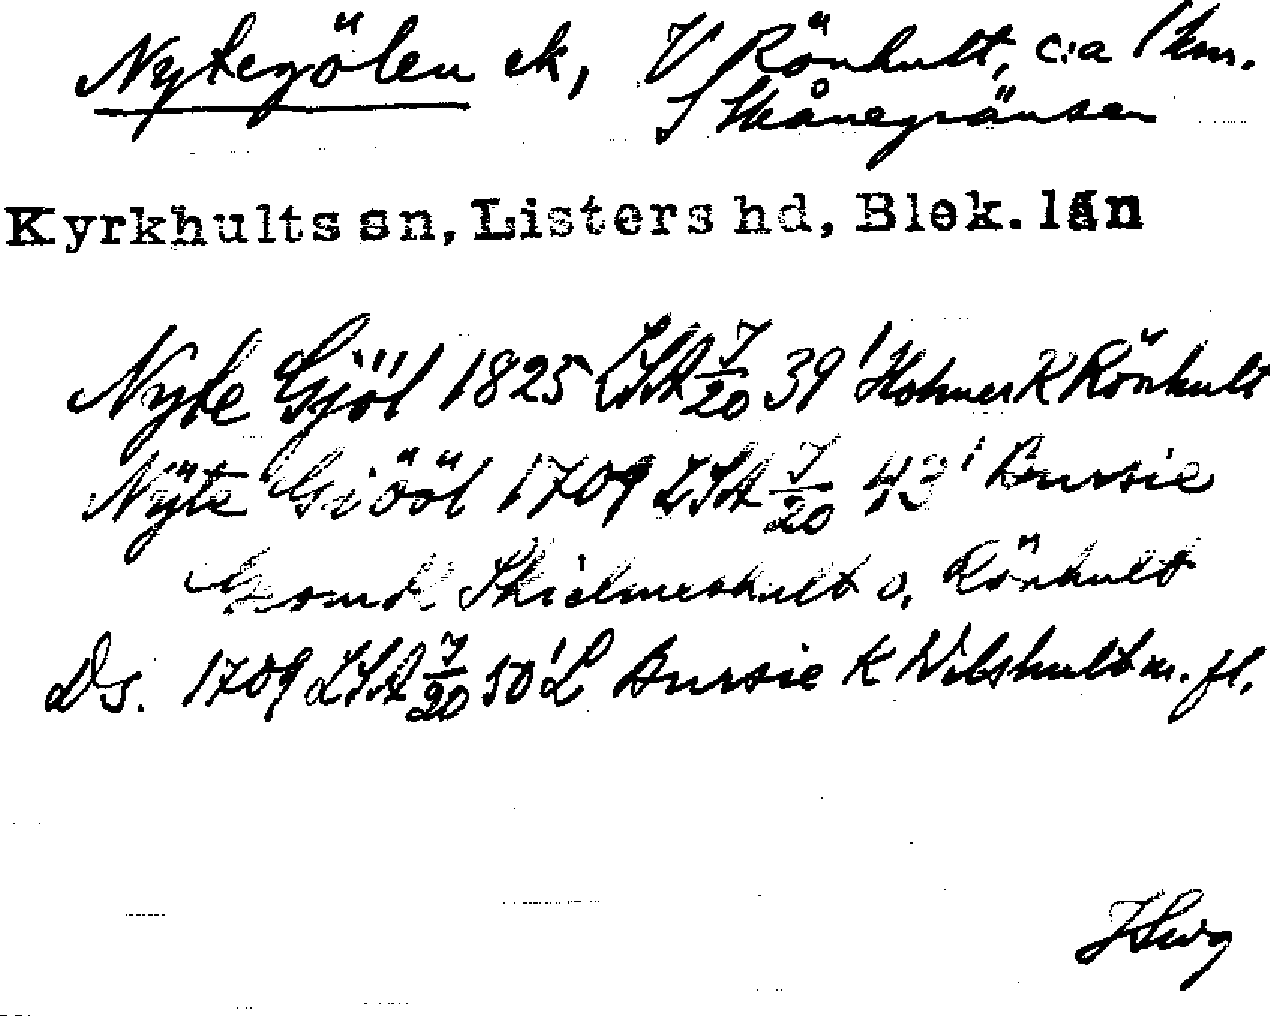 Nytegölen ek, V Rönhult, c:a 1 km.
S Skånegränsen
Kyrkhults sn, Listers hd, Blek. län
Nyte Gjöl 1825 LSA 7/20 39' Holmer K Rönhult
Nÿte Giööl 1709 LSA 7/20 43' Bursie
Skielmeshult o. Rönhult
Ds. 1709 LSA 7/20 50' L Bursie K Wilshult m. fl.